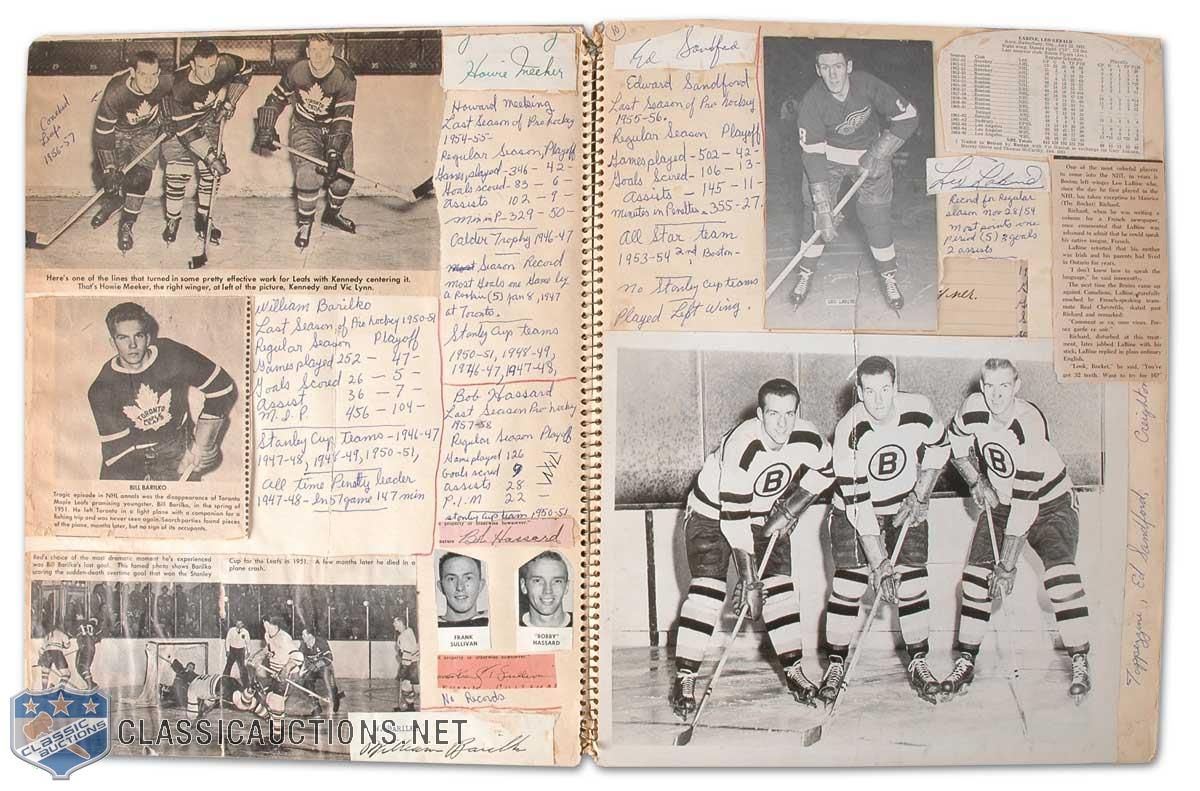 Coached
Leafs
1956-57
Here's one of the lines that turned in some pretty effective work for Leafs with Kennedy centering it.
That's Howie Meeker, the right winger, at left of the picture, Kennedy and Vic Lynn.
BILL BARILKO
Tragic episode in NHL annals was the disappearance of Toronto
Maple Leafs promising youngster, Bill Barilko, in the spring of
1951. He left Toronto in a light plane with a companion for a
fishing trip and was never seen again. Search parties found pieces
of the plane, months later, but no sign of its occupants.
William Barilko
Last Season of Pro hockey 1950-51
Regular Season Playoff
Games played 252 - 47-
Goals Scored 26 - 5 -
Assist 36 - 7
M.I.P. 456 - 104-
Stanley Cup Teams - 1946-47
1947-48, 1948-49, 1950-51,
All time Penalty leader
1947-48 - In 57 game 147 min
Red's choice of the most dramatic moment he's experienced
was Bill Barilko's last goal. This famed photo shows Barilko
scoring the sudden-death overtime goal that won the Stanley
Cup for the Leafs in 1951. A few months later he died in a
plane crash.
Howie Meeker
Howard Meeking
Last Season of Pro hockey
1954-55-
Regular Season, Playoff
Games played - 346 - 42-
Goals scored - 83 - 6 -
Assists 102 - 9
Min in P- 329 - 50-
Calder Trophy 1946-47
Season Record
Most Goals one Game by
a Rookie (5) Jan 8, 1947
at Toronto.
Stanley Cup teams
1950-51, 1948-49,
1946-47, 1947-48,
Bob Hassard
Last Season Pro hockey
1957-58
Regular Season Playoff
Game played 126
Goals scored 9
assists 28
P.I.M 22 -
Stanley Cup team 1950-51
Bob Hassard
FRANK
SULLIVAN
"BOBBY"
HASSARD
No Records
William Barilko
CLASSIC
AUCTIONS
CLASSICAUCTIONS.NET
10
Ed Sandford
Edward Sandford
Last Season of Pro hockey
1955-56.
Regular Season Playoff
Games played - 502 - 42-
Goals Scored - 106 - 13-
Assists - 145 - 11-
minutes in Penaltes - 355-27.
All Star team
1953-54 2nd Boston-
No Stanley Cup teams
Played Left Wing.
LEO LABINE
LABINE, LEO GERALD
Leo Labine
Record for Regular
season Nov 28/54
Most points one
period (5) 3 goals
2 assists
One of the most colorful players
to come into the NHL in years is
Boston left winger Leo LaBine who,
since the day he first played in the
NHL has taken exception to Maurice
(The Rocket) Richard.
Richard, when he was writing a
column for a French newspaper,
once commented that LaBine was
ashamed to admit that he could speak
his native tongue, French.
LaBine retorted that his mother
was Irish and his parents had lived
in Ontario for years.
"I don't know how to speak the
language," he said innocently.
The next time the Bruins came up
against Canadiens, LaBine, carefully
coached by French-speaking team-
mate Real Chevrefils, skated past
Richard and remarked:
Richard, disturbed at this treat-
ment, later jabbed LaBine with his
stick. LaBine replied in plain ordinary
English.
"Look, Rocket," he said, "You've
got 32 teeth. Want to try for 16?"
Toppazzini, Ed Sandford, Creighton